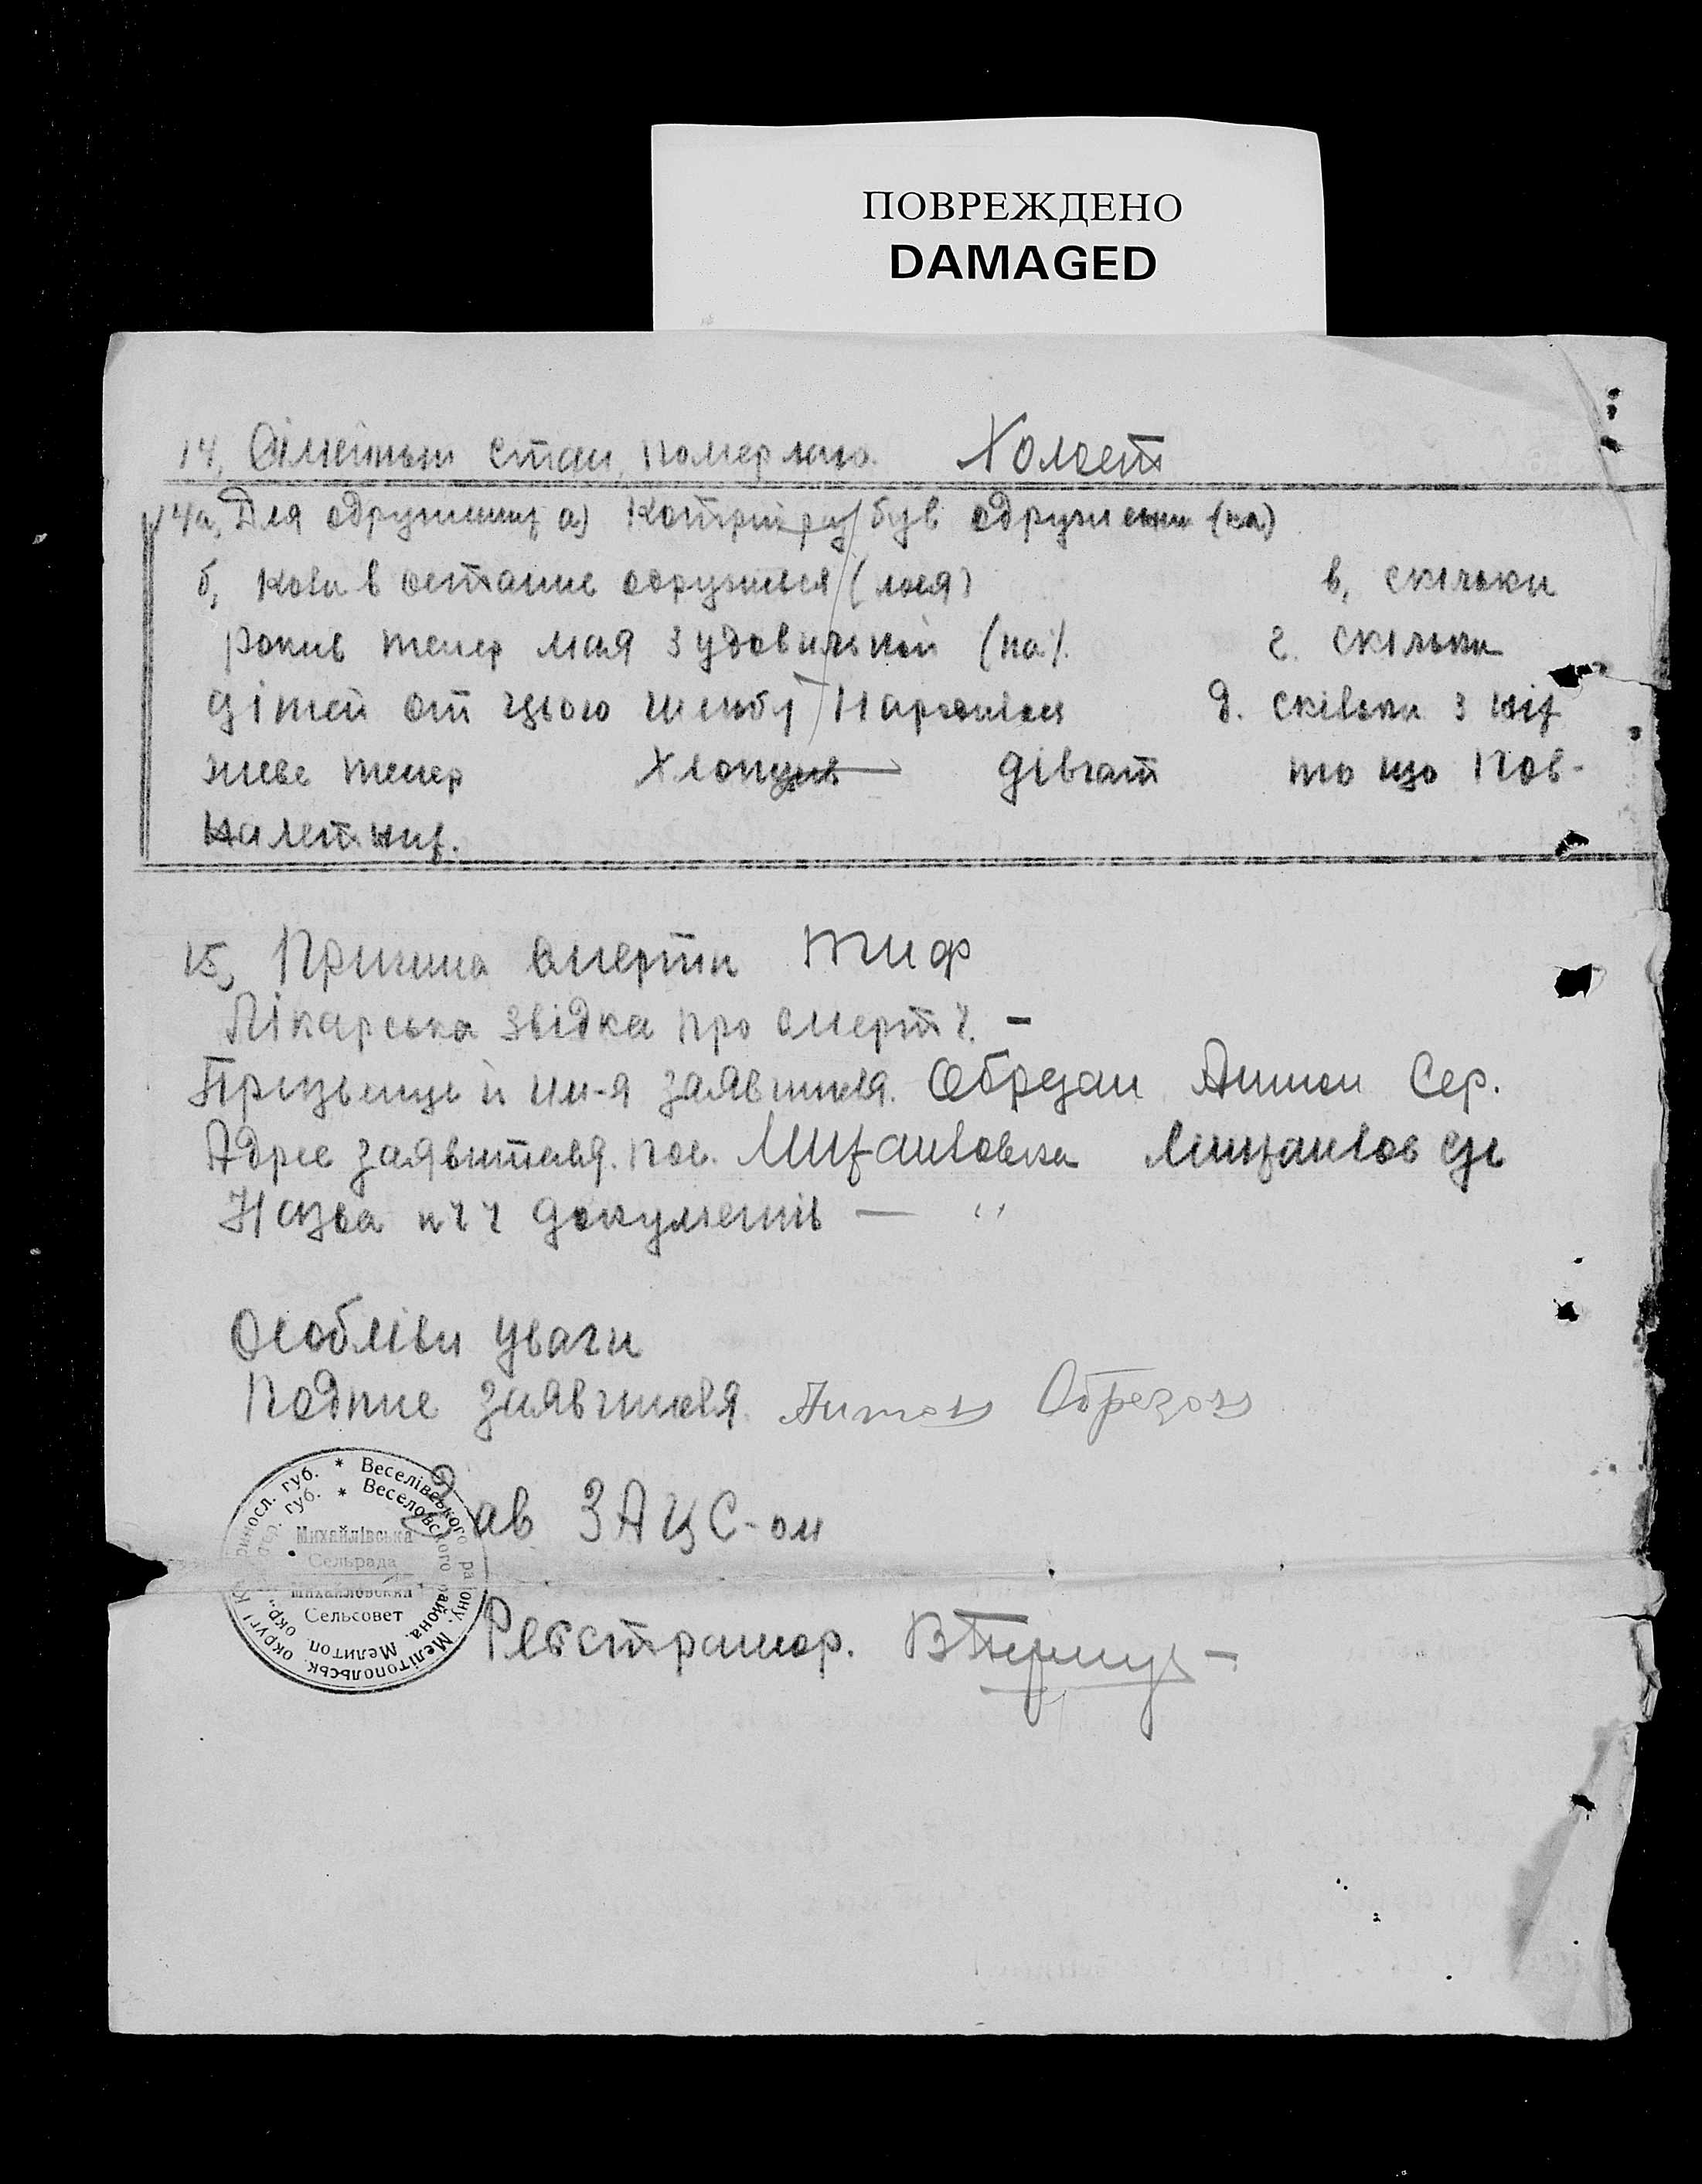 ПОВРЕЖДЕНО
DAMAGED
14, Сімейный стан, померлого. Холост
14а, Для одружених а) Котрий раз був одружений (на)
б, Коли в останне одружився (лося) в, скільки
років тепер мая з удовильной (на). г. скільки
дітей от цього шлюбу народилося д. скільки з них
живе тепер Хлопцев дівчат то що пов-
налетних.
15, Причина смерти тиф
Лікарська звідка про смерть. —
Призвище й им-я заявителя. Обрезан Антон Сер.
Адрес заявителя. пос. Михайловка Михайлов с/с
Назва и документів — "
Особліви уваги
Подпис заявителя. Антон Обрезан
Зав ЗАЦС-ом
Регстратор.
* Веселівського району. Мелітопольськ. округі
* Веселовского района. Мелитоп. окр.
губ.
губ.
Михайлівська
Сельрада
Михайловский
Сельсовет